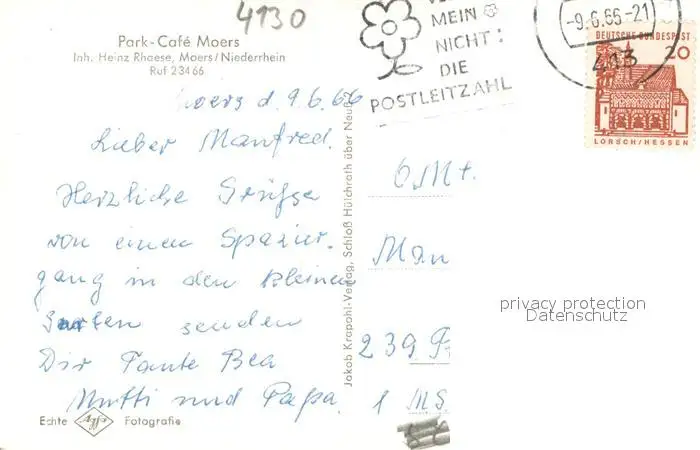 4130
Park-Café Moers
Inh. Heinz Rhaese, Moers/Niederrhein
Ruf 23466
MEIN
NICHT!
DIE
POSTLEITZAHL
-9.6.66-21
413
DEUTSCHE BUNDESPOST
20
LORSCH/HESSEN
Moers d. 9.6.66
Lieber Manfred.
Herzliche Grüße
von einem Spazier-
gang in den kleinen
Garten senden
Dir Tante Bea
Mutti und Papa.
Jakob Krapohl-Verlag, Schloß Hülchrath über Neuß
Man
239
1
privacy protection
Datenschutz
Echte Agfa Fotografie